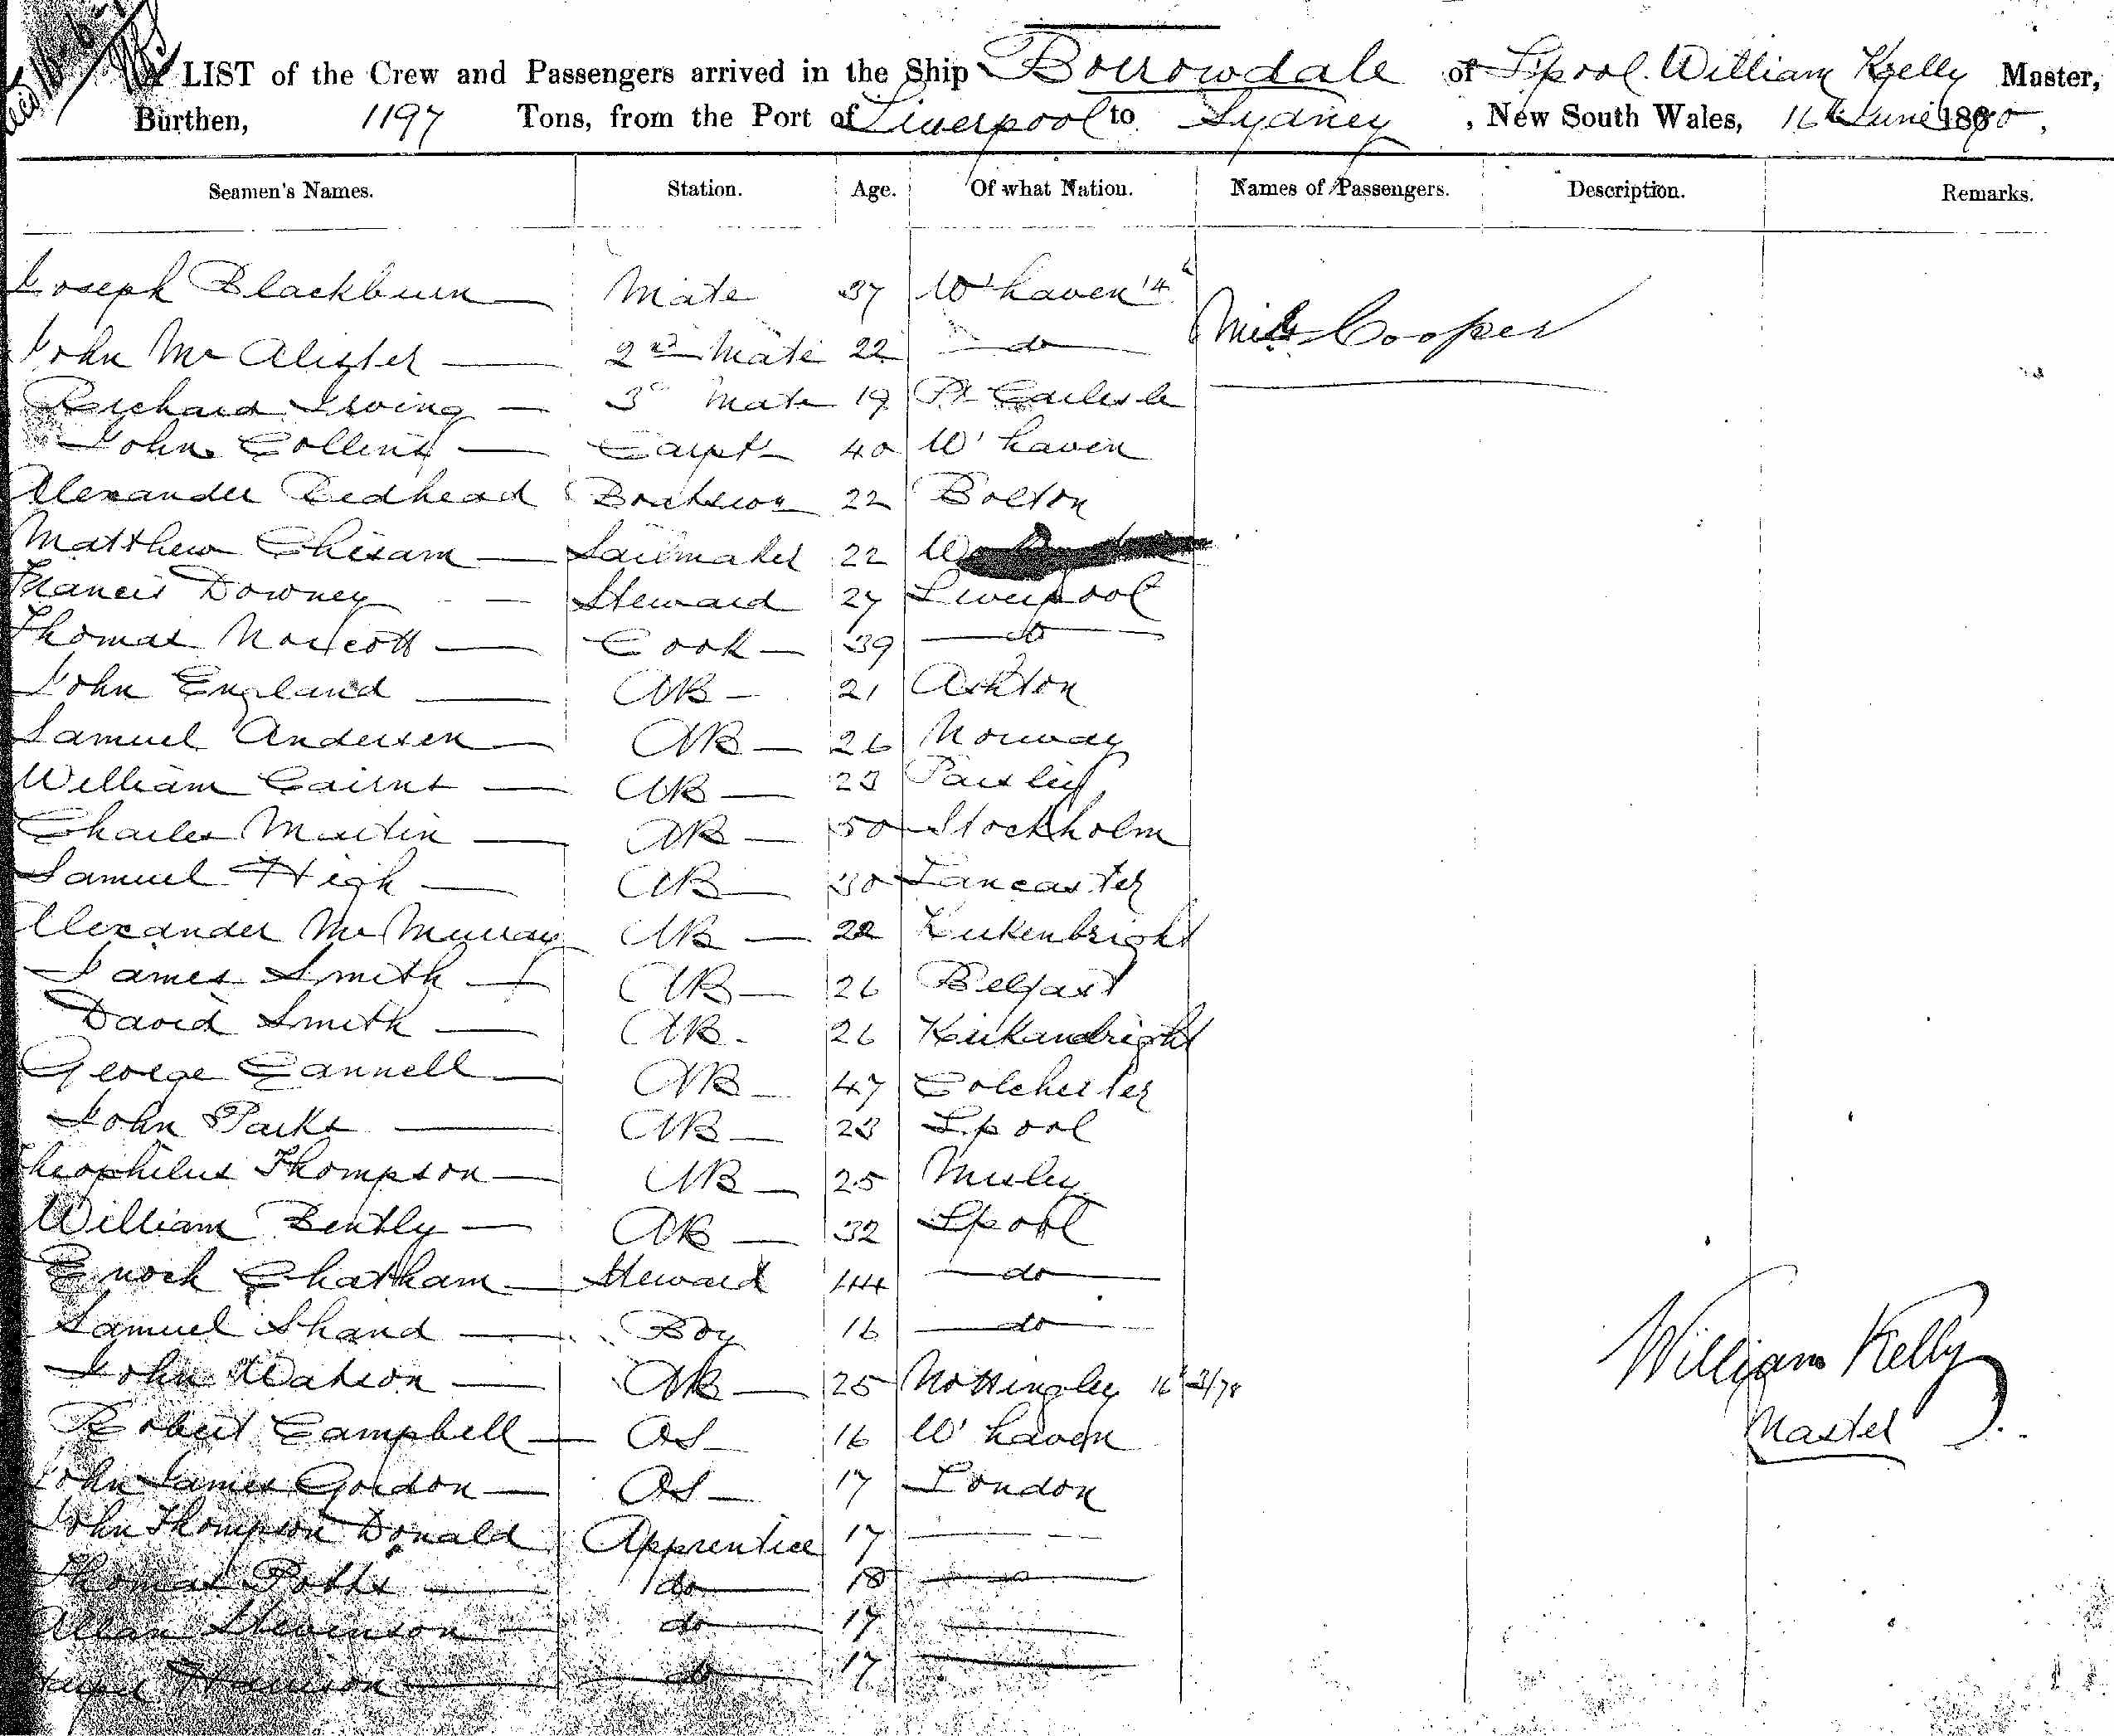 A LIST of the Crew and Passengers arrived in the Ship Borrowdale of L'pool William Kelly Master,
Burthen, 1197 Tons, from the Port of Liverpool to Sydney, New South Wales, 16th June 1880,
Seamen's Names. Station. Age. Of what Nation. Names of Passengers. Description. Remarks.
Joseph Blackburn Mate 37 W'haven
Cooper
John Mc Alister 2nd Mate 22 do
Richard Irving 3d Mate 19 Pt Carlisle
John Collins Carptr 40 W'haven
Alexander Redhead Boatswn 22 Bolton
Matthew Chisam Sailmaker 22
Francis Downey Steward 27 Liverpool
Thomas Norcott Cook 39 do
John England AB 21 Ashton
Samuel Andersen AB 26 Norway
William Cairns AB 23 Paisley
Charles Martin AB 50 Stockholm
Samuel High AB 30 Lancaster
Alexander Mc Murray AB 22 Kirkenbright
James Smith AB 26 Belfast
David Smith AB 26 Kirkandright
George Cannell AB 47 Colchester
John Parks AB 23 L'pool
Theophilus Thompson AB 25 Misley
William Bently AB 32 L'pool
Enoch Chatham Steward 44 do
Samuel Shand Boy 16 do
John Watson AB 25 Nottingley
Robert Campbell OS 16 W'haven
John James Gordon OS 17 London
John Thompson Donald Apprentice 17
Thomas Potts do 18
Allan Stevenson do 17
Harrison do 17
William Kelly
Master